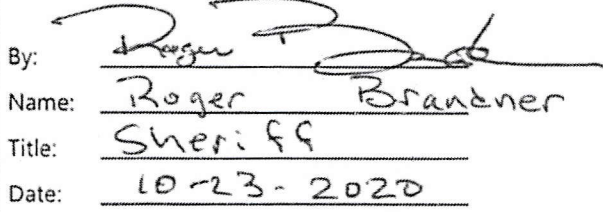 By: Roger
Name: Roger Brandner
Title: Sheriff
Date: 10-23-2020